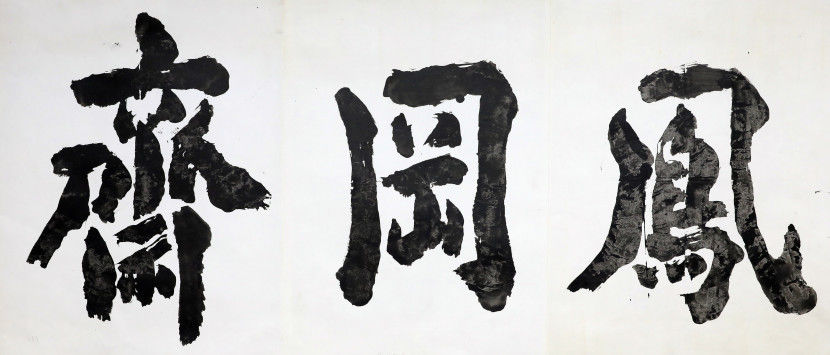 鳳岡齋